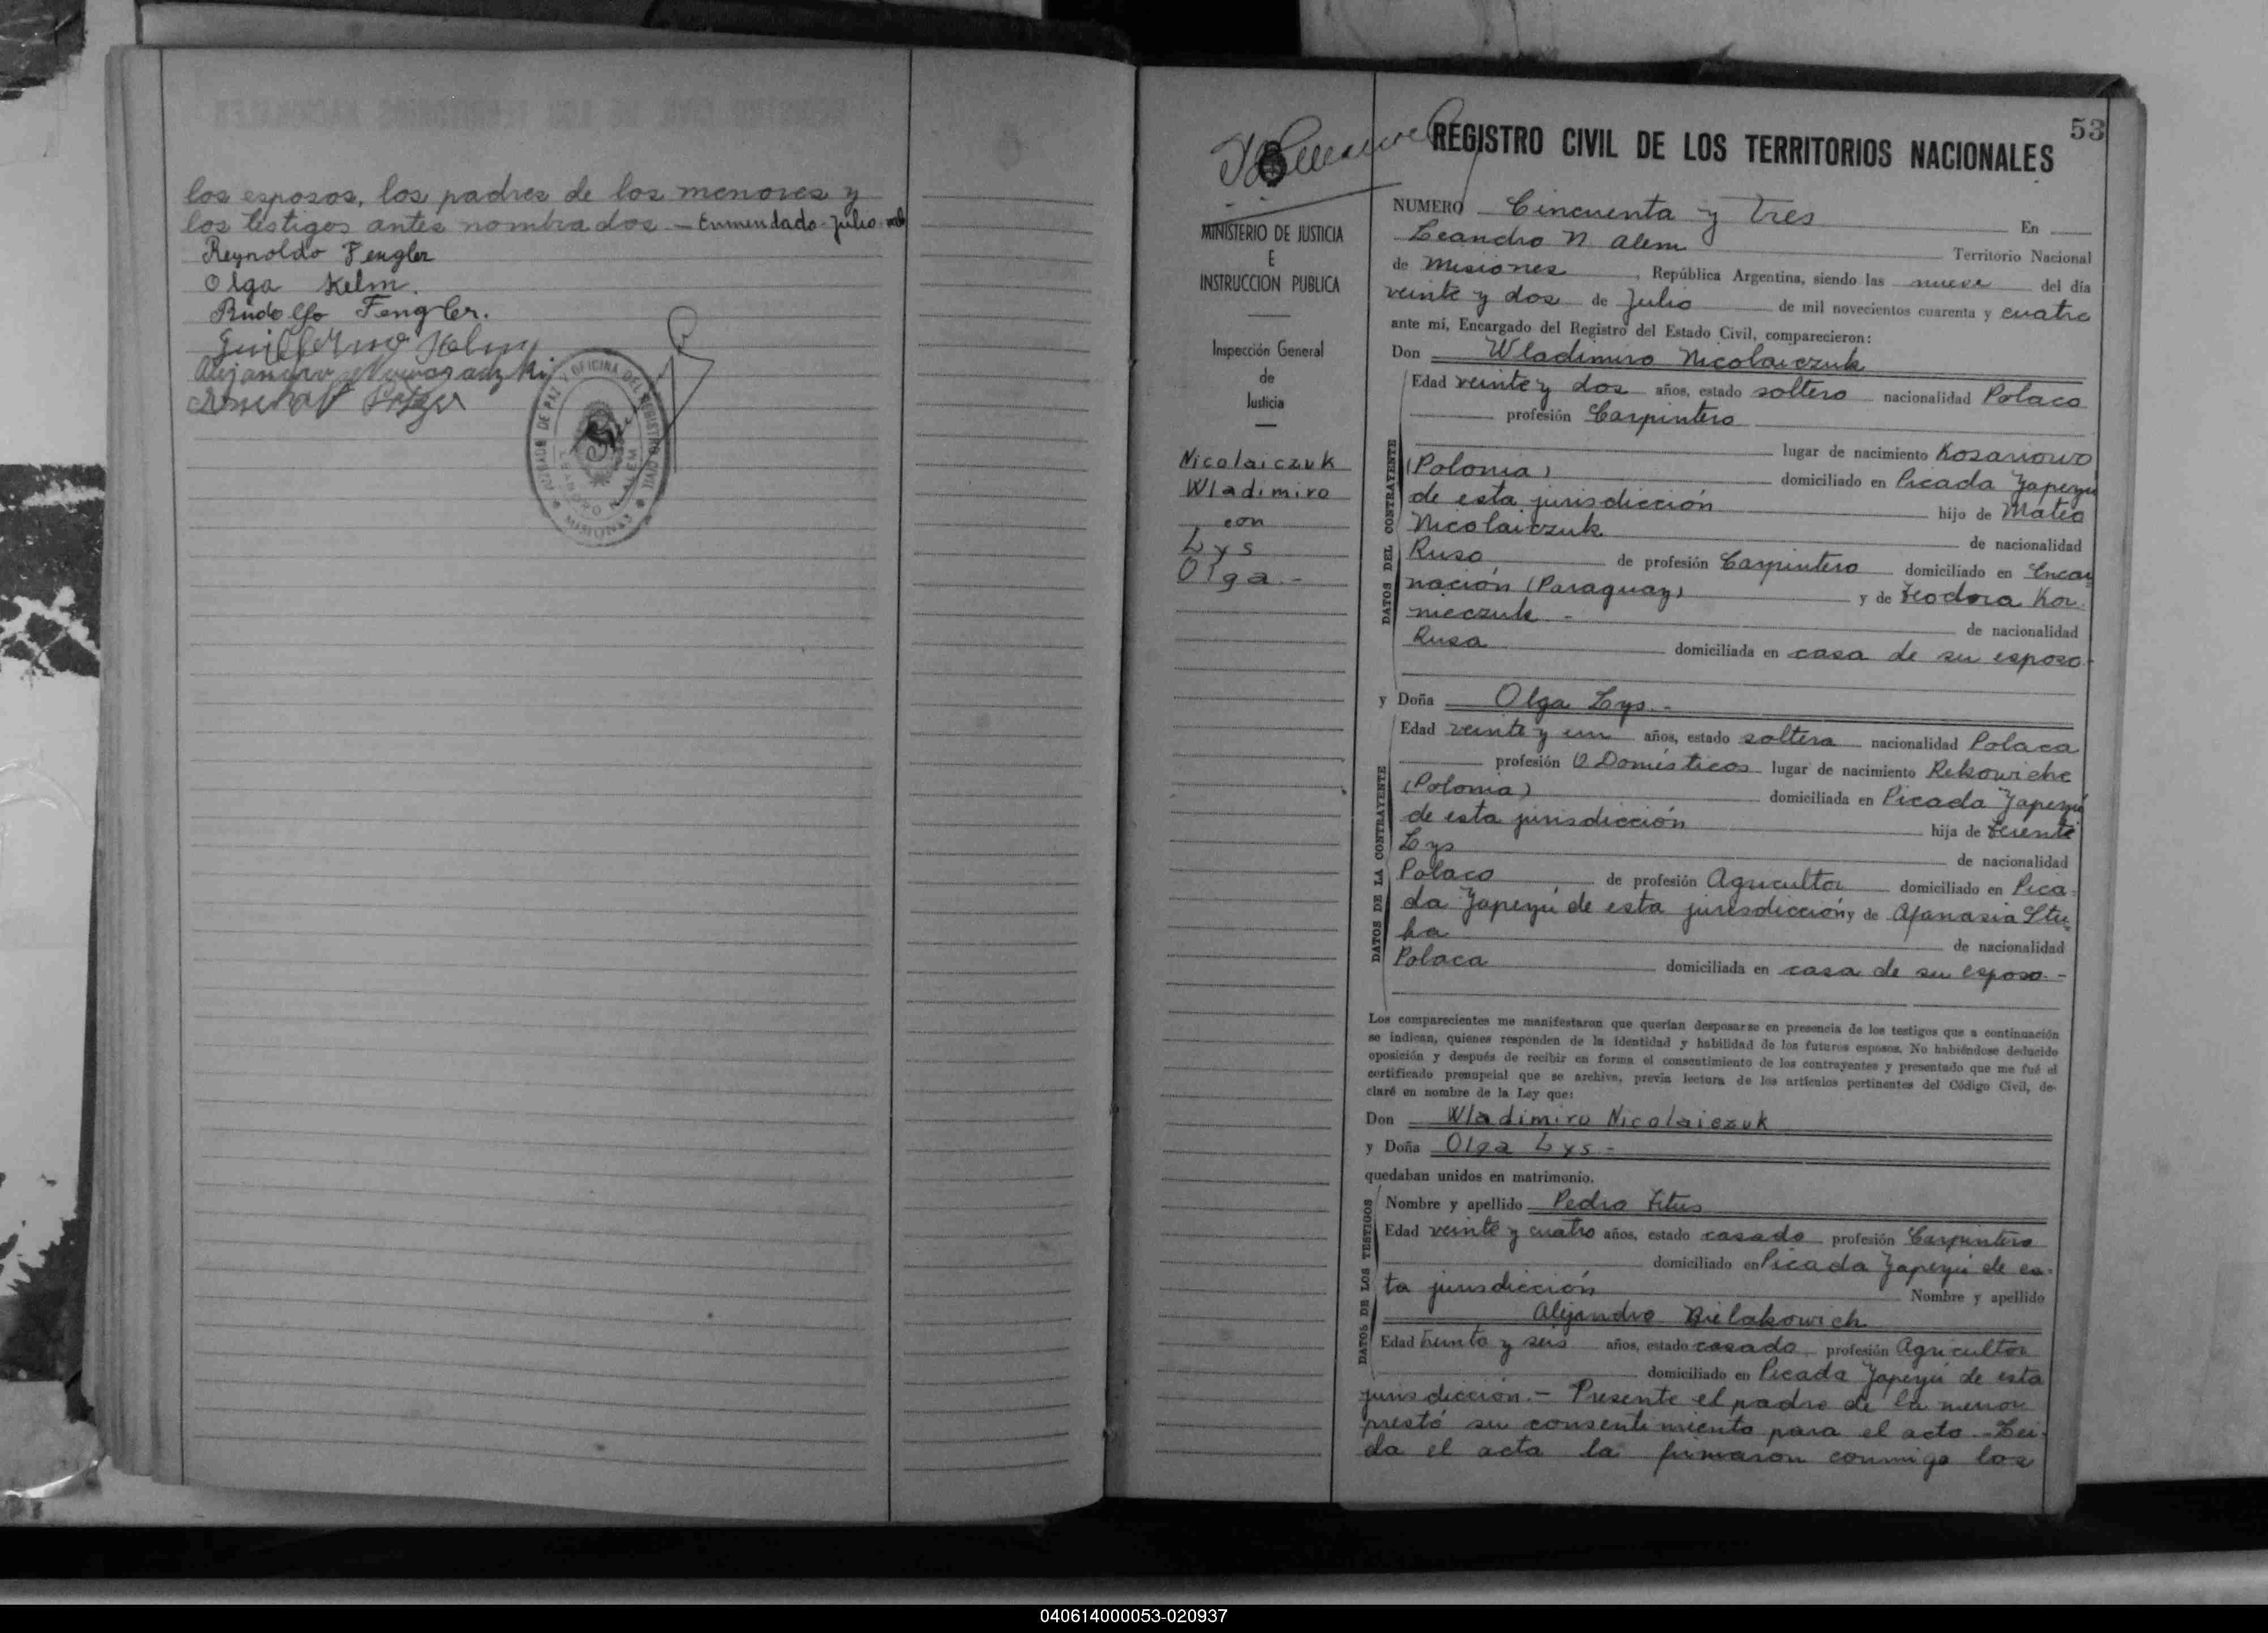 los esposos, los padres de los menores y
los testigos antes nombrados. - Enmendado - Julio - vale
Reynoldo Fengler
Olga Kelm.
Rudolfo Fengler.
Guillermo Kelm
Alejandro
JUZGADO DE PAZ Y OFICINA DEL REGISTRO CIVIL
LEANDRO N. ALEM
MISIONES
53
REGISTRO CIVIL DE LOS TERRITORIOS NACIONALES
MINISTERIO DE JUSTICIA
E
INSTRUCCION PUBLICA
Inspección General
de
Justicia
Nicolaiczuk
Wladimiro
con
Lys
Olga.-
NUMERO Cincuenta y Tres En
Leandro N. Alem Territorio Nacional
de Misiones, República Argentina, siendo las nueve del día
veinte y dos de Julio de mil novecientos cuarenta y cuatro
ante mí, Encargado del Registro del Estado Civil, comparecieron:
Don Wladimiro Nicolaiczuk
Edad veinte y dos años, estado soltero nacionalidad Polaco
profesión Carpintero
lugar de nacimiento Kosariowo
(Polonia) domiciliado en Picada Yapeyú
de esta jurisdicción hijo de Mateo
Nicolaiczuk de nacionalidad
Ruso de profesión Carpintero domiciliado en Encar
nación (Paraguay) y de Teodora Kor
nieczuk - de nacionalidad
Rusa domiciliada en casa de su esposo-
DATOS DEL CONTRAYENTE
y Doña Olga Lys.-
Edad veinte y un años, estado soltera nacionalidad Polaca
profesión Q. Domésticos lugar de nacimiento Rekowiche
(Polonia) domiciliada en Picada Yapeyú
de esta jurisdicción hija de Terente
Lys de nacionalidad
Polaco de profesión Agricultor domiciliado en Pica-
da Yapeyú de esta jurisdicción y de Afanasia Stu
ka de nacionalidad
Polaca domiciliada en casa de su esposo.-
DATOS DE LA CONTRAYENTE
Los comparecientes me manifestaron que querían desposarse en presencia de los testigos que a continuación
se indican, quienes responden de la identidad y habilidad de los futuros esposos. No habiéndose deducido
oposición y después de recibir en forma el consentimiento de los contrayentes y presentado que me fué el
certificado prenupcial que se archiva, previa lectura de los artículos pertinentes del Código Civil, de-
claré en nombre de la Ley que:
Don Wladimiro Nicolaiczuk
y Doña Olga Lys -
quedaban unidos en matrimonio.
Nombre y apellido Pedro Titus
Edad veinte y cuatro años, estado casado profesión Carpintero
domiciliado en Picada Yapeyú de es-
ta jurisdicción Nombre y apellido
Alejandro Bielakowich
Edad treinta y seis años, estado casado profesión Agricultor
domiciliado en Picada Yapeyú de esta
DATOS DE LOS TESTIGOS
jurisdicción.- Presente el padre de la menor
prestó su consentimiento para el acto.- Leí-
da el acta la firmaron conmigo los
040614000053-020937